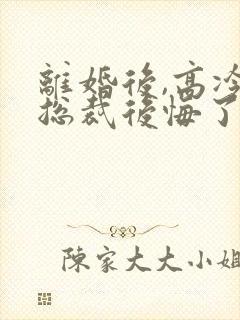 離婚後,高冷
总裁後悔了
陳家大大小姐